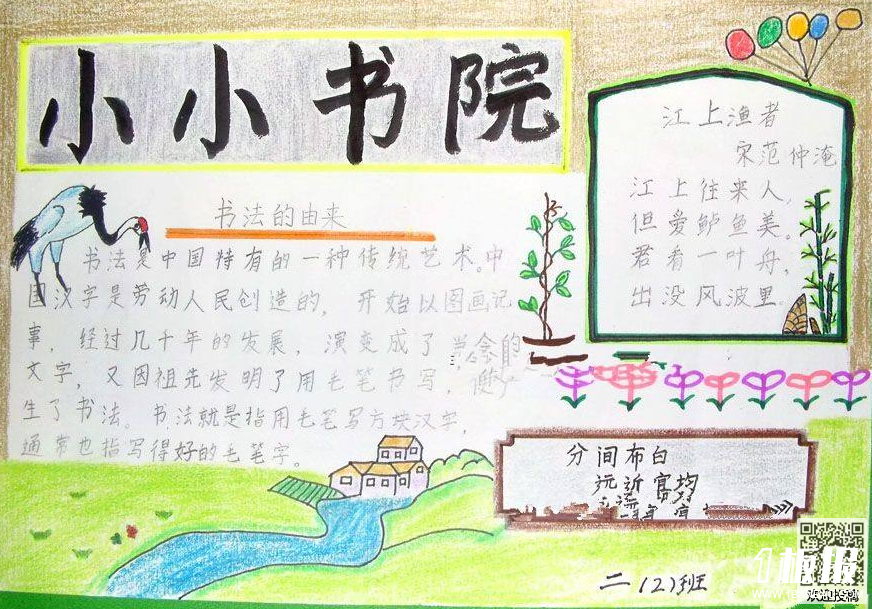 小小书院
书法的由来
书法是中国特有的一种传统艺术。中
国汉字是劳动人民创造的，开始以图画记
事，经过几千年的发展，演变成了当念的
文字，又因祖先发明了用毛笔书写，便产
生了书法。书法就是指用毛笔写方块汉字，
通常也指写得好的毛笔字。
江上渔者
宋范仲淹
江上往来人，
但爱鲈鱼美。
君看一叶舟，
出没风波里。
分间布白
远近宜均
二（2）班
欢迎投稿